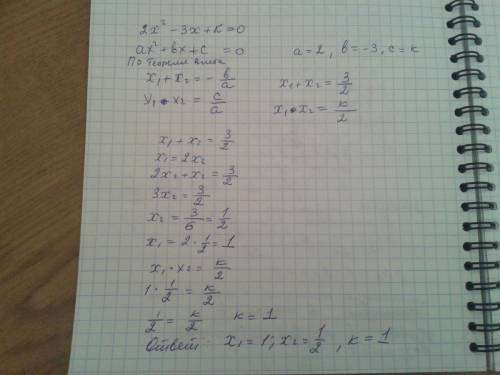 2x² - 3x + k = 0
ax² + bx + c = 0    a = 2, b = -3, c = k
По теореме Виета
x₁ + x₂ = - b/a    x₁ + x₂ = 3/2
x₁ • x₂ = c/a    x₁ • x₂ = k/2
x₁ + x₂ = 3/2
x₁ = 2x₂
2x₂ + x₂ = 3/2
3x₂ = 3/2
x₂ = 3/6 = 1/2
x₁ = 2 · 1/2 = 1
x₁ · x₂ = k/2
1 · 1/2 = k/2
1/2 = k/2    k = 1
Ответ: x₁ = 1; x₂ = 1/2, k = 1